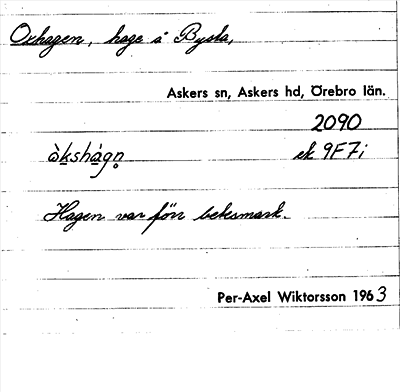 Oxhagen, hage å Bysta,
Askers sn, Askers hd, Örebro län.
2090
òkshágn̥ ek 9F7i
Hagen var förr betesmark.
Per-Axel Wiktorsson 1963